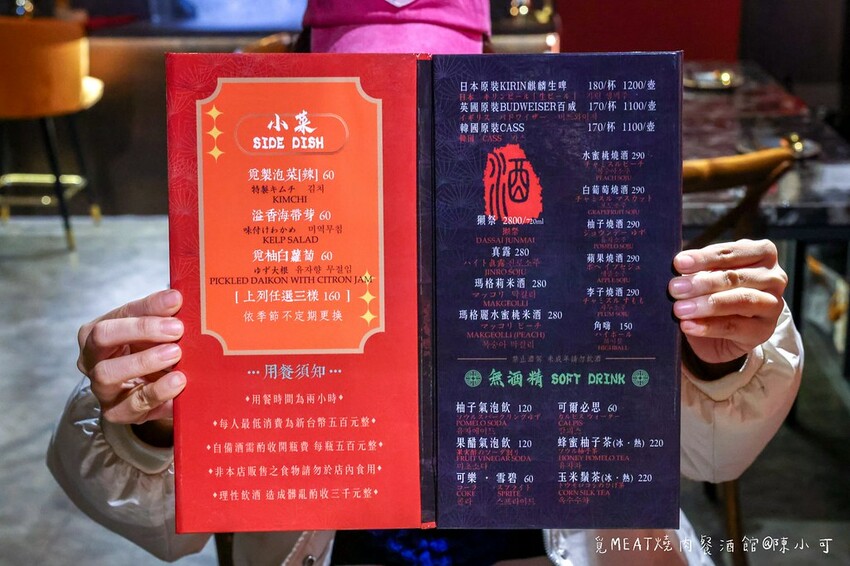 小菜
SIDE DISH
覓製泡菜[辣] 60
特製キムチ 김치
KIMCHI
溢香海帶芽 60
味付けわかめ 미역무침
KELP SALAD
覓柚白蘿蔔 60
ゆず大根 유자향 무절임
PICKLED DAIKON WITH CITRON JAM
[ 上列任選三樣 160 ]
依季節不定期更換
… 用餐須知 …
用餐時間為兩小時
每人最低消費為新台幣五百元整
自備酒需酌收開瓶費 每瓶五百元整
非本店販售之食物請勿於店內食用
理性飲酒 造成髒亂酌收三千元整
日本原裝KIRIN麒麟生啤 180/杯 1200/壺
日本 キリンビール「生ビール」
英國原裝BUDWEISER百威 170/杯 1100/壺
イギリス バドワイザー
韓國原裝CASS 170/杯 1100/壺
韓國 CASS 카스
酒
獺祭 2800/720ml
獺祭
DASSAI JUNMAI
真露 280
JINRO SOJU
瑪格莉米酒 280
マッコリ 막걸리
MAKGEOLLI
瑪格麗水蜜桃米酒 280
マッコリ ピーチ
복숭아 막걸리
MAKGEOLLI (PEACH)
水蜜桃燒酒 290
PEACH SOJU
白葡萄燒酒 290
チャミスル マスカット
GRAPEFRUIT SOJU
柚子燒酒 290
POMELO SOJU
蘋果燒酒 290
APPLE SOJU
李子燒酒 290
チャミスル すもも
PLUM SOJU
角嗨 150
ハイボール
하이볼
HIGHBALL
禁止酒駕 未成年請勿飲酒
無酒精 SOFT DRINK
柚子氣泡飲 120
POMELO SODA
유자에이드
果醋氣泡飲 120
FRUIT VINEGAR SODA
可樂・雪碧 60
コーラ スプライト
COKE SPRITE
콜라 스프라이트
可爾必思 60
カルピスウォーター
CALPIS
蜂蜜柚子茶(冰・熱) 220
HONEY POMELO TEA
유자차
玉米鬚茶(冰・熱) 220
CORN SILK TEA
옥수수차
覓MEAT燒肉餐酒館@陳小可